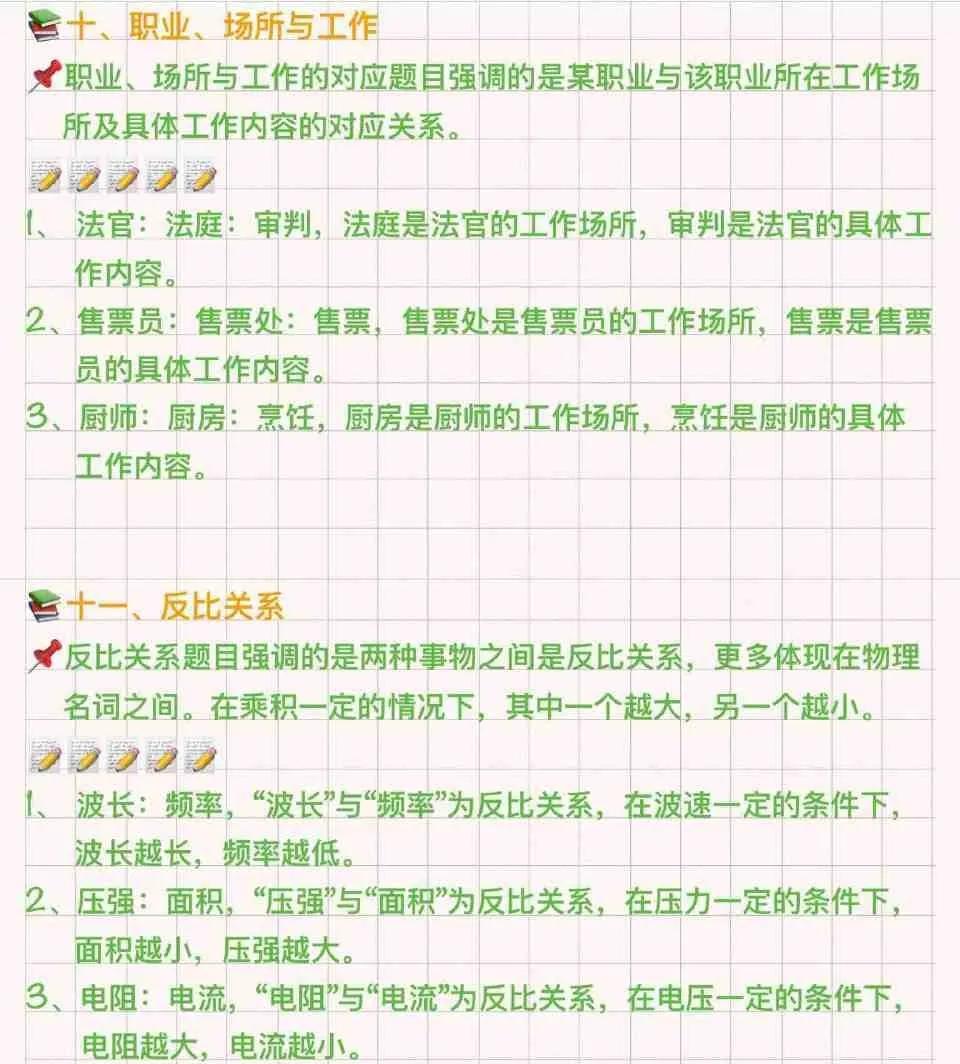 十、职业、场所与工作
职业、场所与工作的对应题目强调的是某职业与该职业所在工作场
所及具体工作内容的对应关系。
1、法官：法庭：审判，法庭是法官的工作场所，审判是法官的具体工
作内容。
2、售票员：售票处：售票，售票处是售票员的工作场所，售票是售票
员的具体工作内容。
3、厨师：厨房：烹饪，厨房是厨师的工作场所，烹饪是厨师的具体
工作内容。
十一、反比关系
反比关系题目强调的是两种事物之间是反比关系，更多体现在物理
名词之间。在乘积一定的情况下，其中一个越大，另一个越小。
1、波长：频率，“波长”与“频率”为反比关系，在波速一定的条件下，
波长越长，频率越低。
2、压强：面积，“压强”与“面积”为反比关系，在压力一定的条件下，
面积越小，压强越大。
3、电阻：电流，“电阻”与“电流”为反比关系，在电压一定的条件下，
电阻越大，电流越小。